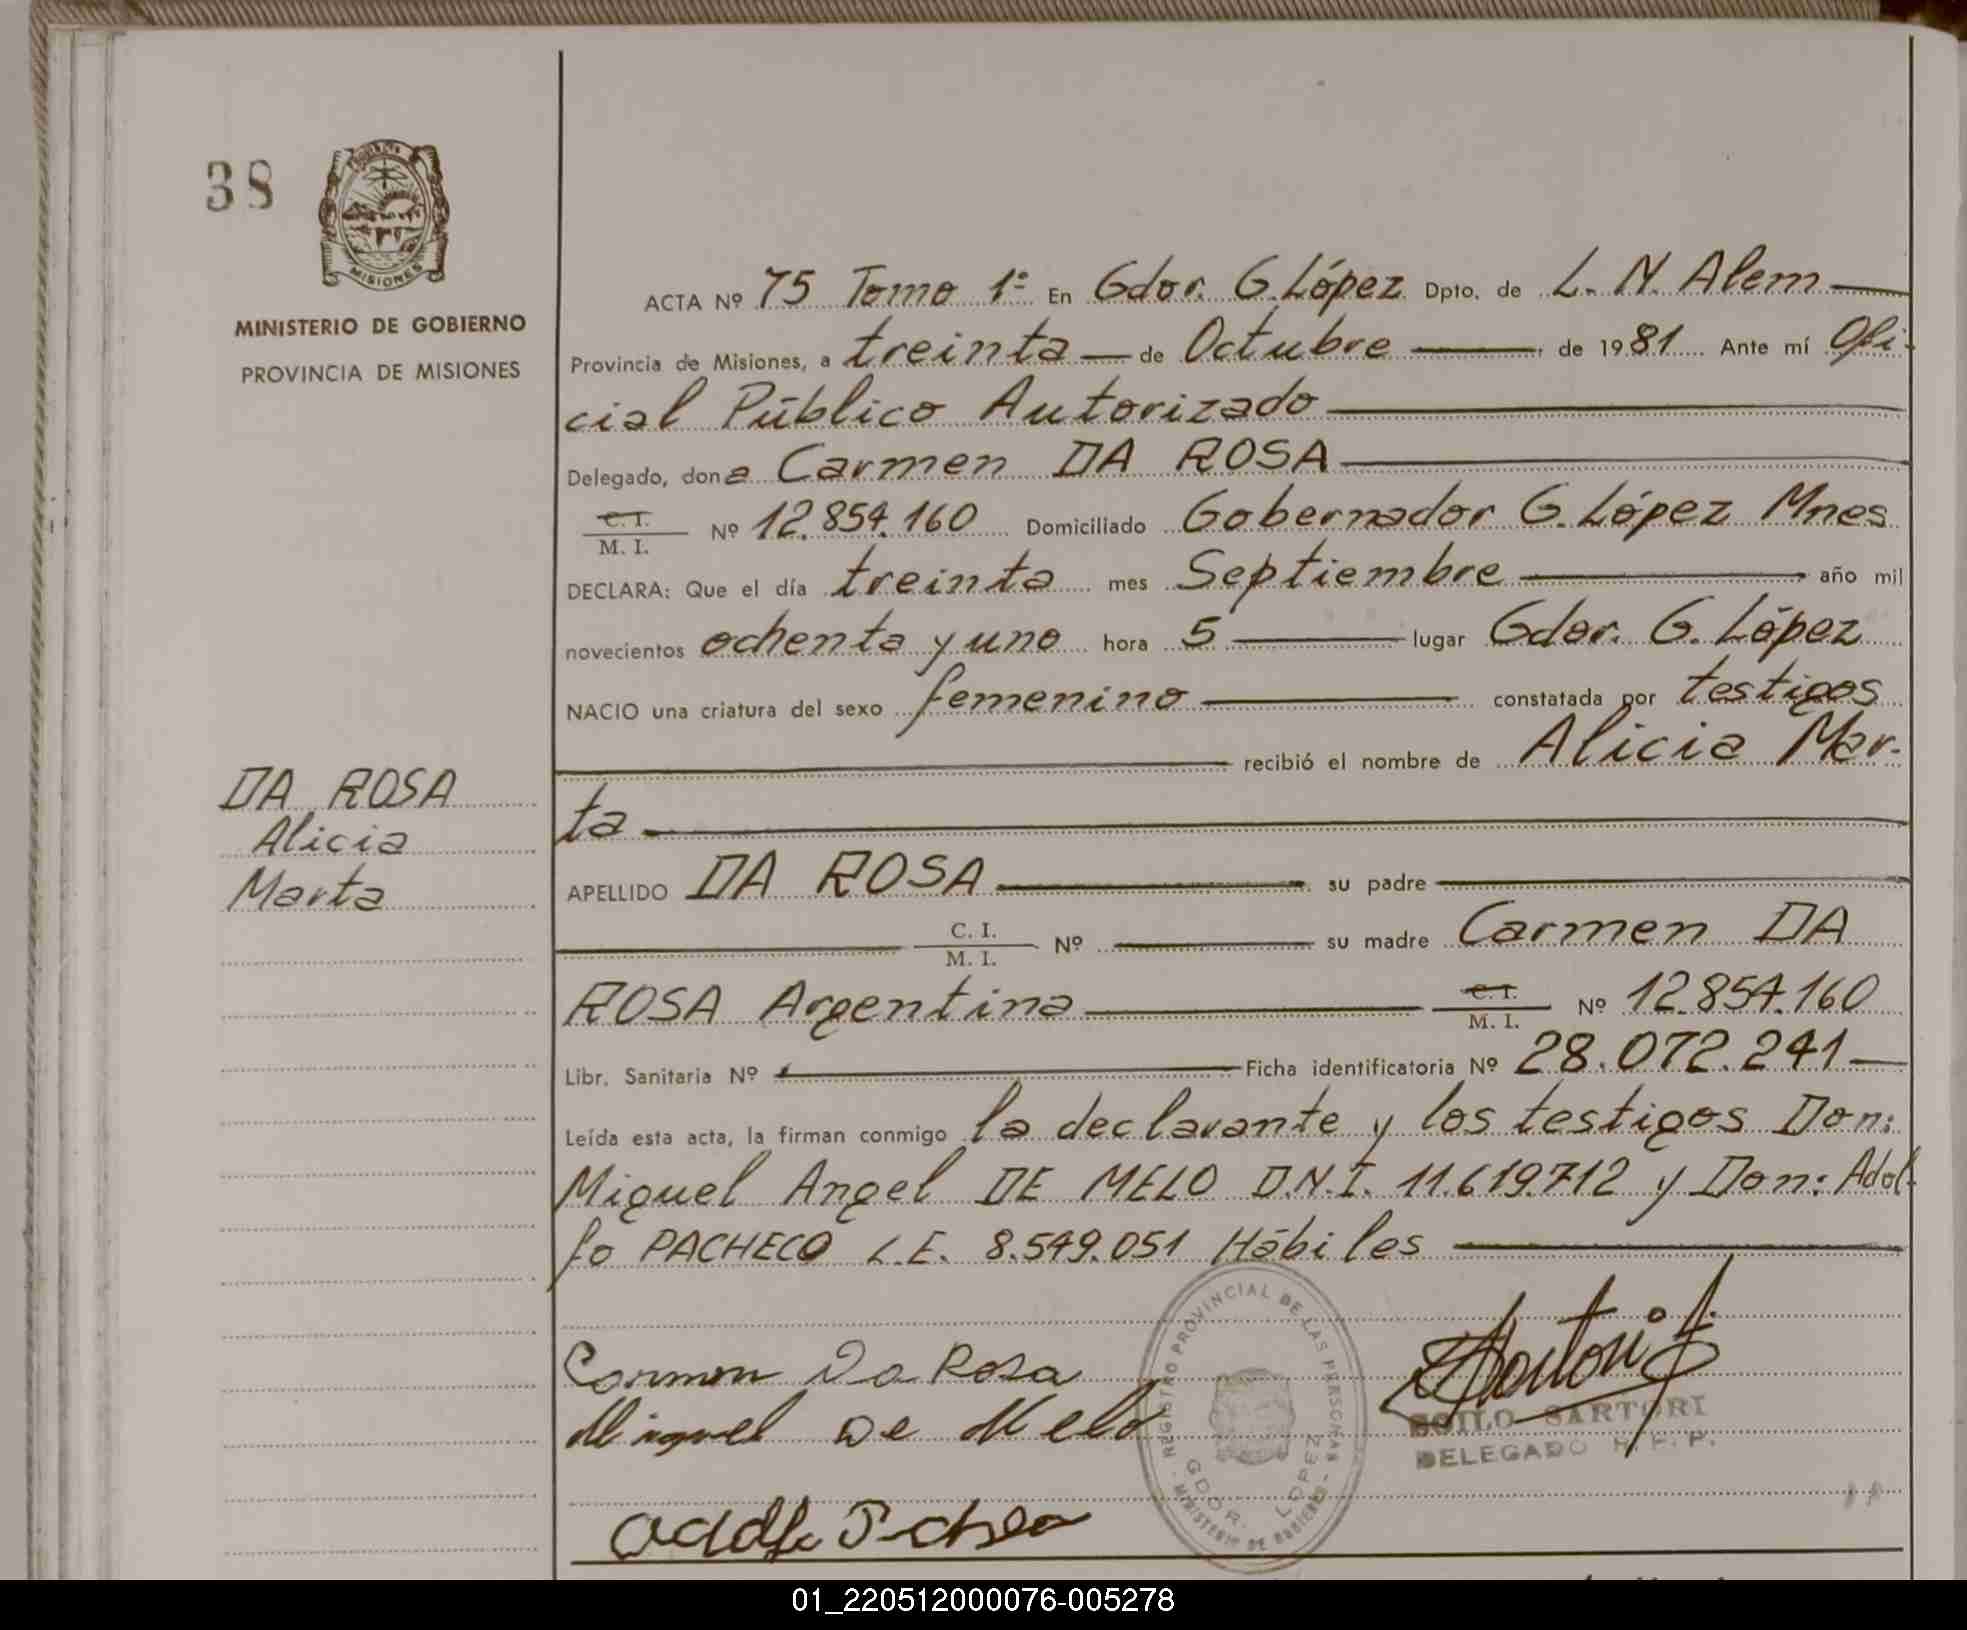 38
MISIONES
MINISTERIO DE GOBIERNO
PROVINCIA DE MISIONES
ACTA Nº 75 Tomo 1º En Gdor. G. López Dpto. de L. N. Alem
Provincia de Misiones, a treinta de Octubre de 1981 Ante mí Ofi-
cial Público Autorizado
Delegado, dona Carmen DA ROSA
C. I. / M. I. Nº 12.854.160 Domiciliado Gobernador G. López Mnes
DECLARA: Que el día treinta mes Septiembre año mil
novecientos ochenta y uno hora 5 lugar Gdor. G. López
NACIO una criatura del sexo femenino constatada por testigos
recibió el nombre de Alicia Mar-
ta
DA ROSA
Alicia
Marta
APELLIDO DA ROSA su padre
C. I. / M. I. Nº su madre Carmen DA
ROSA Argentina C. I. / M. I. Nº 12.854.160
Libr. Sanitaria Nº Ficha identificatoria Nº 28.072.241
Leída esta acta, la firman conmigo la declarante y los testigos Don:
Miguel Angel DE MELO D.N.I. 11.619.712 y Don: Adol-
fo PACHECO L.E. 8.549.051 Hábiles
Carmen Da Rosa
Miguel De Melo
REGISTRO PROVINCIAL DE LAS PERSONAS
GDOR. LOPEZ
MINISTERIO DE GOBIERNO
SARTORI
DELEGADO R. P. P.
01_220512000076-005278